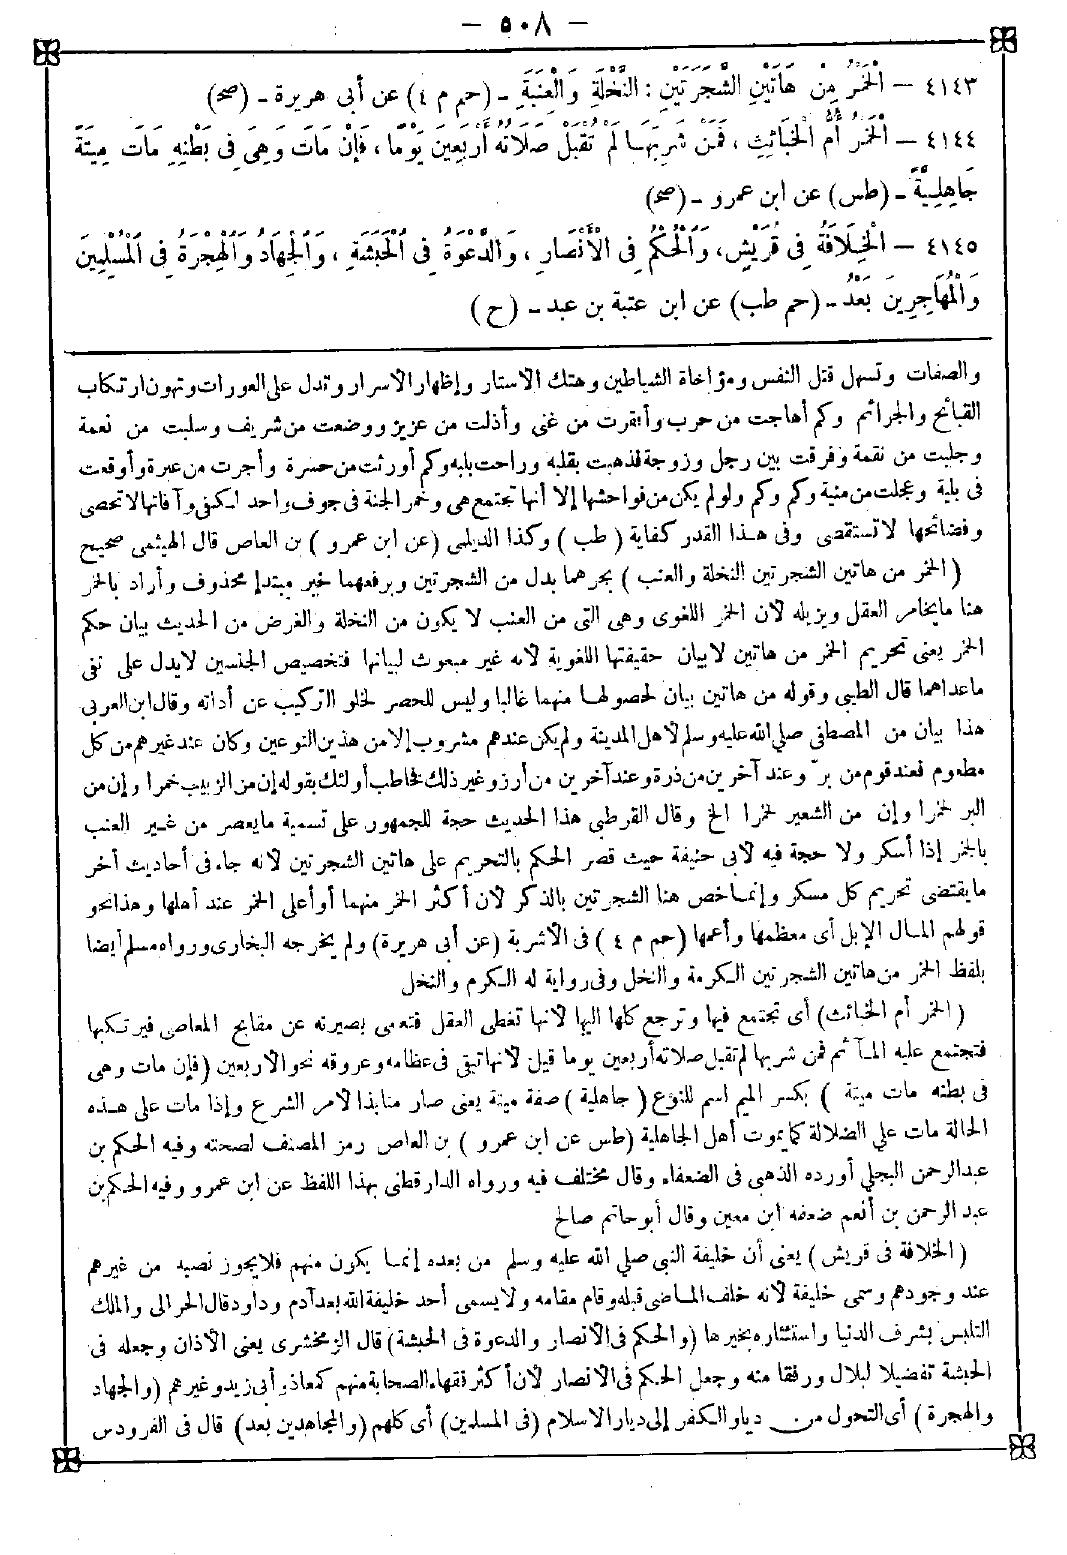 — ٥٠٨ —
٤١٤٣ — الْخَمْرُ مِنْ هَاتَيْنِ الشَّجَرَتَيْنِ : النَّخْلَةِ وَالْعِنَبَةِ - (حم م ٤) عن أبى هريرة - (صح)
٤١٤٤ — الْخَمْرُ أُمُّ الْخَبَائِثِ ، فَمَنْ شَرِبَهَا لَمْ تُقْبَلْ صَلَاتُهُ أَرْبَعِينَ يَوْمًا ، فَإِنْ مَاتَ وَهِىَ فِى بَطْنِهِ مَاتَ مِيتَةً
جَاهِلِيَّةً - (طس) عن ابن عمرو - (صح)
٤١٤٥ — الْخِلَافَةُ فِى قُرَيْشٍ، وَالْحُكْمُ فِى الْأَنْصَارِ ، وَالدَّعْوَةُ فِى الْحَبَشَةِ ، وَالْجِهَادُ وَالْهِجْرَةُ فِى الْمُسْلِمِينَ
وَالْمُهَاجِرِينَ بَعْدُ - (حم طب) عن ابن عتبة بن عبد - (ح)
والصفات وتسهل قتل النفس ومؤاخاة الشياطين وهتك الأستار وإظهار الأسرار وتدل على العورات وتهون ارتكاب
القبائح والجرائم وكم أهاجت من حرب وأفقرت من غنى وأذلت من عزيز ووضعت من شريف وسلبت من نعمة
وجلبت من نقمة وفرقت بين رجل وزوجة فذهبت بقلبه وراحت بلبه وكم أورثت من حسرة وأجرت من عبرة وأوقعت
فى بلية وعجلت من منية وكم وكم ولو لم يكن من فواحشها إلا أنها تجتمع هى وخمر الجنة فى جوف واحد لكفى وآفاتها لاتحصى
وفضائحها لاتستقصى وفى هذا القدر كفاية (طب) وكذا الديلمى (عن ابن عمرو) بن العاص قال الهيثمى صحيح
(الخمر من هاتين الشجرتين النخلة والعنب) بجرهما بدل من الشجرتين وبرفعهما خبر مبتدإ محذوف وأراد بالخمر
هنا مايخامر العقل ويزيله لأن الخمر اللغوى وهى التى من العنب لا يكون من النخلة والغرض من الحديث بيان حكم
الخمر يعنى تحريم الخمر من هاتين لابيان حقيقتها اللغوية لأنه غير مبعوث لبيانها فتخصيص الجنسين لايدل على نفى
ماعداهما قال الطيبى وقوله من هاتين بيان لحصولهـا منهما غالبا وليس للحصر لخلو التركيب عن أداته وقال ابن العربى
هذا بيان من المصطفى صلى الله عليه وسلم لأهل المدينة ولم يكن عندهم مشروب إلا من هذين النوعين وكان عند غيرهم من كل
مطعوم فعند قوم من برّ وعند آخرين من ذرة وعند آخرين من أرز وغير ذلك فخاطب أولئك بقوله إن من الزبيب خمرا وإن من
البر لخمرا وإن من الشعير لخمرا الخ وقال القرطبى هذا الحديث حجة للجمهور على تسمية مايعصر من غير العنب
بالخمر إذا أسكر ولا حجة فيه لأبى حنيفة حيث قصر الحكم بالتحريم على هاتين الشجرتين لأنه جاء فى أحاديث أخر
مايقتضى تحريم كل مسكر وإنمـا خص هنا الشجرتين بالذكر لأن أكثر الخمر منهما أو أعلى الخمر عند أهلها وهذا نحو
قولهم المـال الإبل أى معظمها وأعمها (حم م ٤) فى الأشربة (عن أبى هريرة) ولم يخرجه البخارى ورواه مسلم أيضا
بلفظ الخمر من هاتين الشجرتين الكرمة والنخل وفى رواية له الكرم والنخل
(الخمر أم الخبائث) أى تجتمع فيها وترجع كلها اليها لأنها تغطى العقل فتعمى بصيرته عن مقابح المعاصى فيرتكبها
فتجتمع عليه المـآثم فمن شربها لم تقبل صلاته أربعين يوما قيل لأنها تبقى فى عظامه وعروقه نحو الأربعين (فإن مات وهى
فى بطنه مات ميتة) بكسر الميم اسم للنوع (جاهلية) صفة ميتة يعنى صار منابذا لأمر الشرع وإذا مات على هـذه
الحالة مات على الضلالة كما يموت أهل الجاهلية (طس عن ابن عمرو) بن العاص رمز المصنف لصحته وفيه الحكم بن
عبدالرحمن البجلى أورده الذهبى فى الضعفاء وقال مختلف فيه ورواه الدارقطنى بهذا اللفظ عن ابن عمرو وفيه الحكم بن
عبد الرحمن بن أنعم ضعفه ابن معين وقال أبو حاتم صالح
(الخلافة فى قريش) يعنى أن خليفة النبى صلى الله عليه وسلم من بعده إنمـا يكون منهم فلايجوز نصبه من غيرهم
عند وجودهم وسمى خليفة لأنه خلف المـاضى قبله وقام مقامه ولا يسمى أحد خليفة الله بعد آدم وداود قال الحرالى والملك
التلبس بشرف الدنيا واستئثاره بخيرها (والحكم فى الأنصار والدعوة فى الحبشة) قال الزمخشرى يعنى الأذان وجعله فى
الحبشة تفضيلا لبلال ورفقا منه وجعل الحكم فى الأنصار لأن أكثر فقهاء الصحابة منهم كمعاذ وأبى زيد وغيرهم (والجهاد
والهجرة) أى التحول من ديار الكفر إلى ديار الاسلام (فى المسلمين) أى كلهم (والمجاهدين بعد) قال فى الفردوس